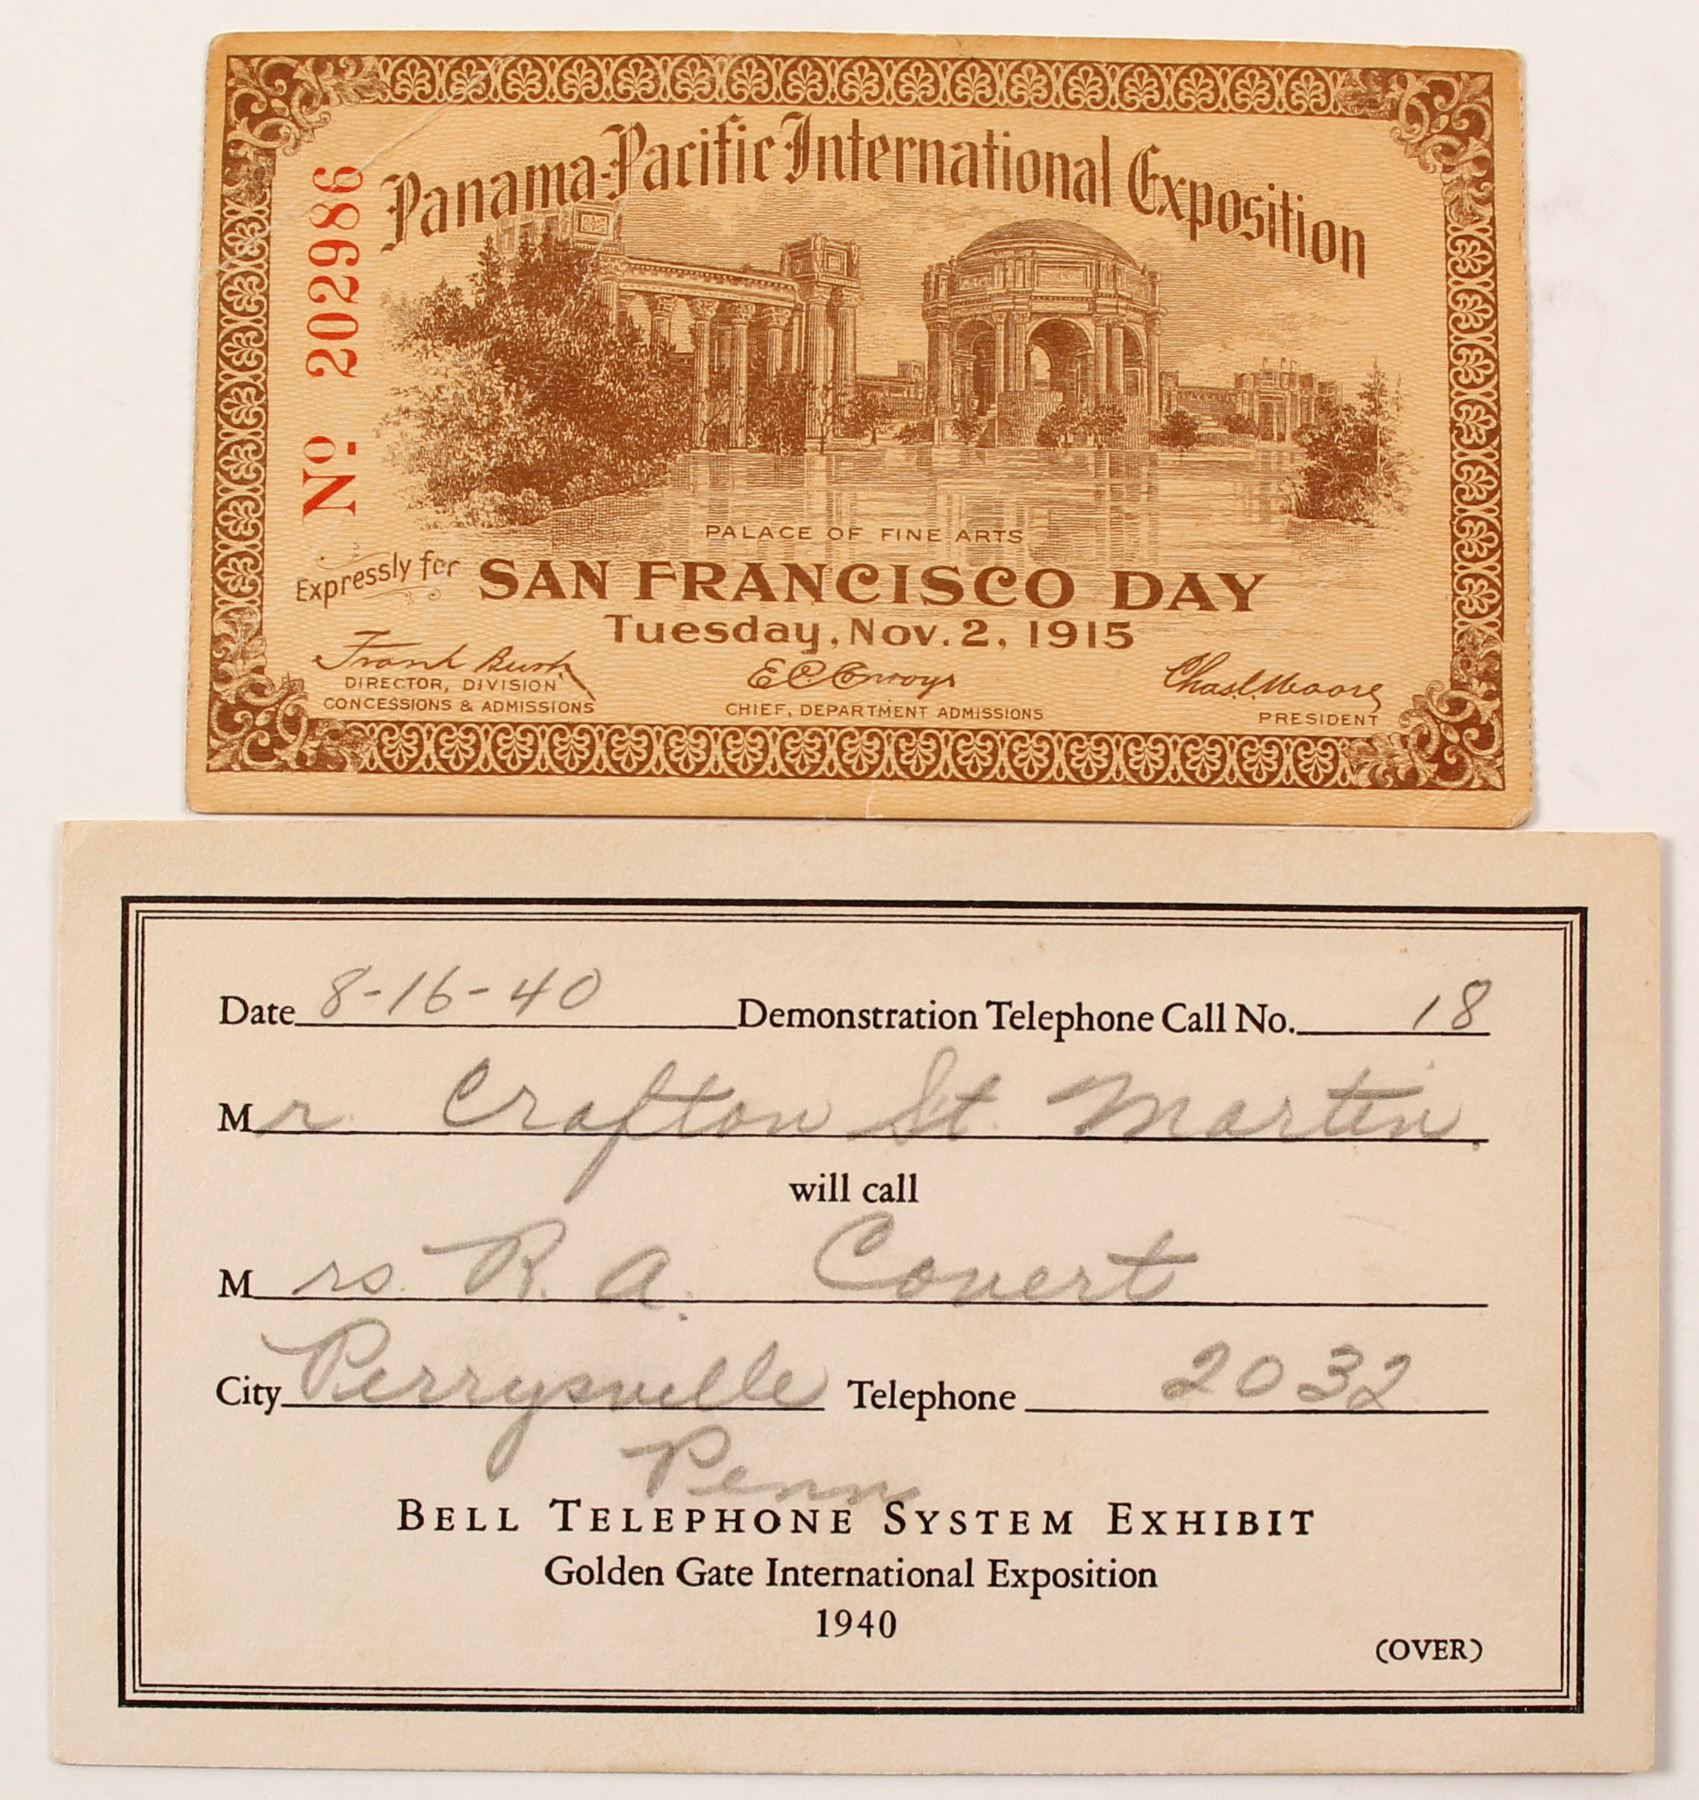 Panama-Pacific International Exposition
No. 202986
PALACE OF FINE ARTS
Expressly for SAN FRANCISCO DAY
Tuesday, Nov. 2, 1915
Frank Burt
DIRECTOR, DIVISION
CONCESSIONS & ADMISSIONS
E C Conroy
CHIEF, DEPARTMENT ADMISSIONS
Chas. C. Moore
PRESIDENT
Date 8-16-40 Demonstration Telephone Call No. 18
Mr. Crafton St. Martin.
will call
Mrs. R. A. Covert
City Perrysville Telephone 2032
Penn
BELL TELEPHONE SYSTEM EXHIBIT
Golden Gate International Exposition
1940
(OVER)